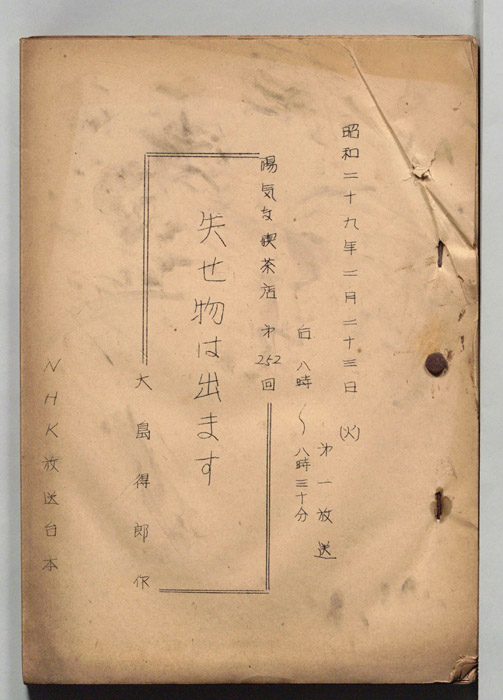 昭和二十九年二月二十三日(火)
第一放送
自八時〜八時三十分
陽気な喫茶店 第252回
失せ物は出ます
大島得郎作
NHK放送台本